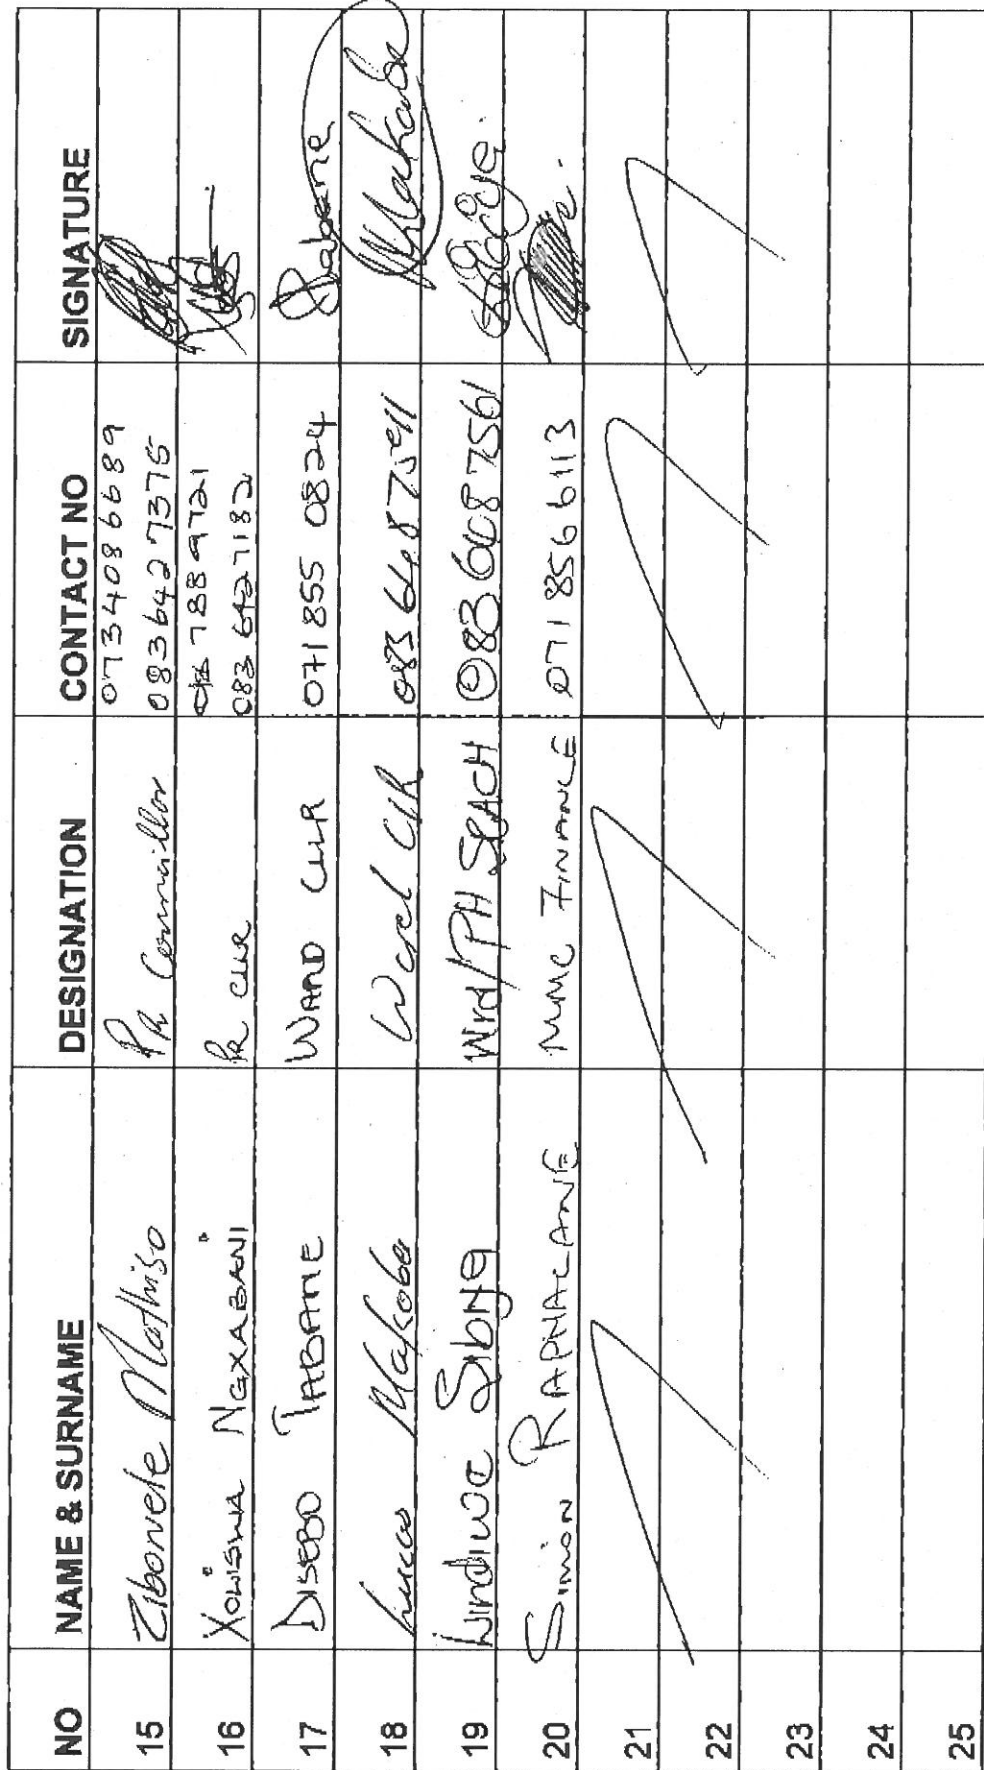 NO NAME & SURNAME DESIGNATION CONTACT NO SIGNATURE
15 Zibonele Mathiso PR Councillor 0734086689
0836427375
16 Xoliswa NGXABANI PR CLLR 7889721
083 6427182
17 DISEBO TABANE WARD CLLR 071 855 0824 Tabane
18 Lucas Makoba Ward Cllr 083 6487511 Makoba
19 Lindiwe Sibiya Wrd/PH 083 6087561
20 Simon RAPHALANE MMC FINANCE 0718566113
21
22
23
24
25